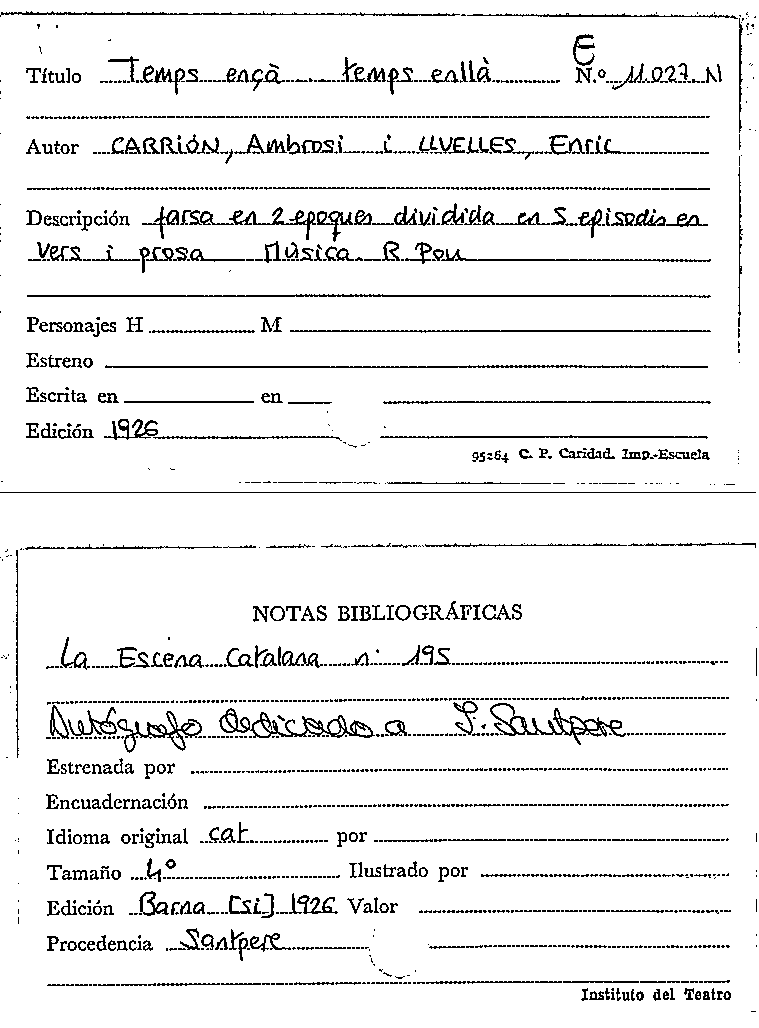 E
Título Temps ençà.. temps enllà N.º 11.027 N
Autor CARRIÓN, Ambrosi i LLUELLES, Enric
Descripción farsa en 2 epoques dividida en 5 episodis en
vers i prosa Música. R. Pou
Personajes H M
Estreno
Escrita en en
Edición 1926
95264 C. P. Caridad. Imp.-Escuela
NOTAS BIBLIOGRÁFICAS
La Escena Catalana n· 195
Autógrafo dedicado a J. Santpere
Estrenada por
Encuadernación
Idioma original cat por
Tamaño 4º Ilustrado por
Edición Barna [si] 1926 Valor
Procedencia Santpere
Instituto del Teatro